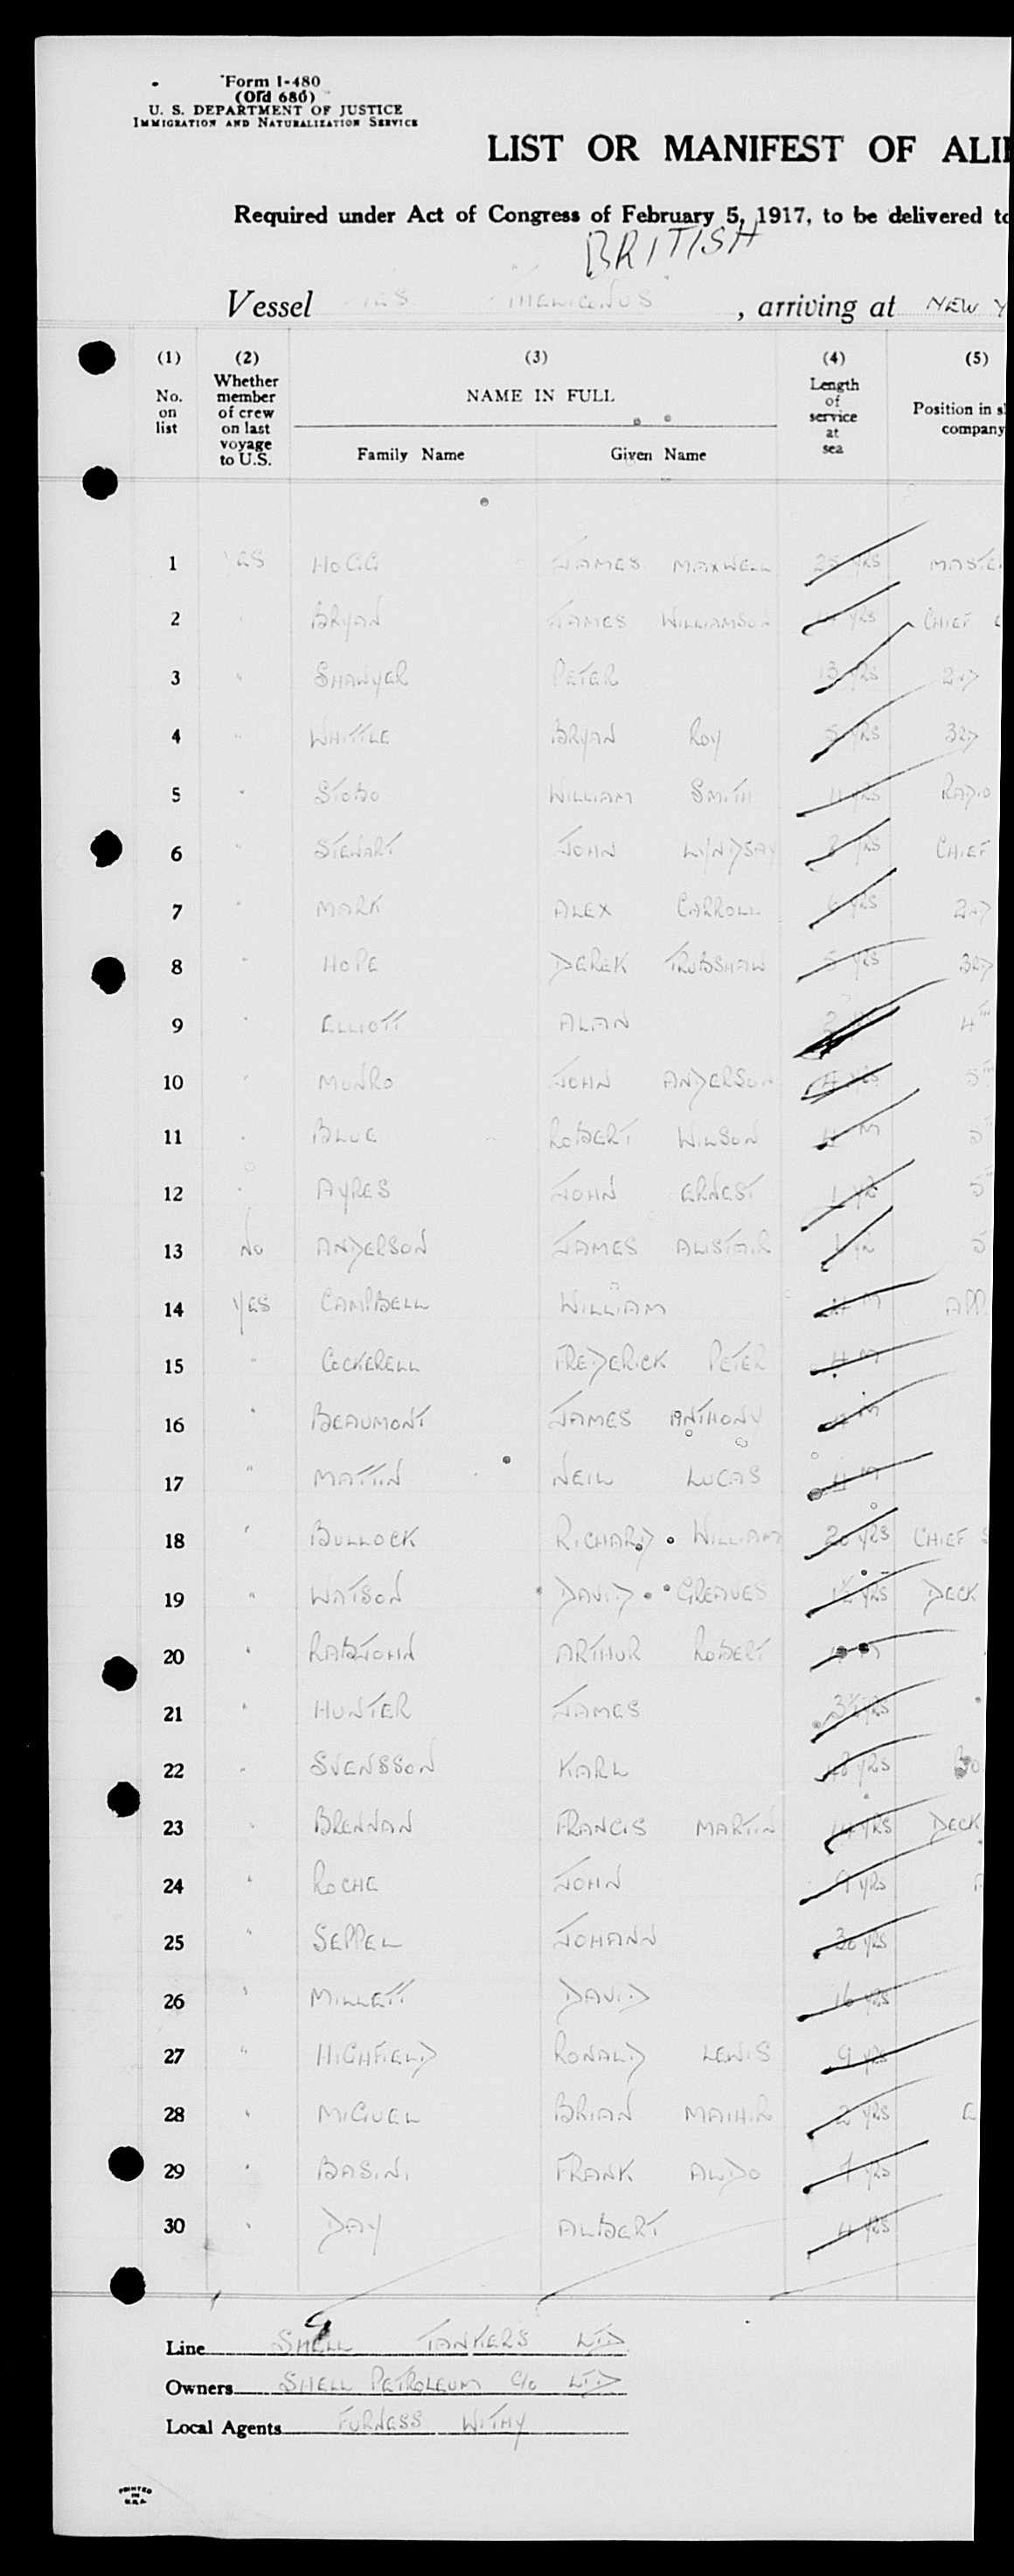 Form I-480
(Old 680)
U. S. DEPARTMENT OF JUSTICE
IMMIGRATION AND NATURALIZATION SERVICE
LIST OR MANIFEST OF ALI
Required under Act of Congress of February 5, 1917, to be delivered to
BRITISH
Vessel , arriving at NEW Y
(1) No. on list (2) Whether member of crew on last voyage to U.S. (3) NAME IN FULL Family Name Given Name (4) Length of service at sea (5) Position in s company
1 YES HOGG JAMES MAXWELL 25 YRS MASTE
2 BRYAN JAMES WILLIAMSON YRS CHIEF
3 " SHAWYER PETER 13 YRS 2ND
4 " WHITTLE BRYAN ROY 5 YRS 3RD
5 " STOBO WILLIAM SMITH 11 YRS RADIO
6 " STEWART JOHN LINDSAY 8 YRS CHIEF
7 " MARK ALEX CARROLL 6 YRS 2ND
8 " HOPE DEREK TRUBSHAW 5 YRS 3RD
9 " ELLIOTT ALAN 4TH
10 " MUNRO JOHN ANDERSON YRS 5TH
11 " BLUE ROBERT WILSON M 5
12 " AYRES JOHN ERNEST 1 YR 5
13 NO ANDERSON JAMES ALISTAIR YR 5
14 YES CAMPBELL WILLIAM M APP
15 " COCKERELL FREDERICK PETER 4 M
16 " BEAUMONT JAMES ANTHONY M
17 " MATTIN NEIL LUCAS 4 M
18 " BULLOCK RICHARD WILLIAM 20 YRS CHIEF S
19 " WATSON DAVID GREAVES YRS DECK
20 " RABJOHN ARTHUR ROBERT M
21 " HUNTER JAMES 3½ YRS
22 " SVENSSON KARL 48 YRS BO
23 " BRENNAN FRANCIS MARTIN 14 YRS DECK
24 " ROCHE JOHN 9 YRS
25 " SEPPEL JOHANN 30 YRS
26 " MILLETT DAVID 16 YRS
27 " HIGHFIELD RONALD LEWIS 9 YRS
28 " MIGUEL BRIAN 2 YRS
29 " BASINI FRANK ALDO 7 YRS
30 " DAY ALBERT 4 YRS
Line SHELL TANKERS LTD
Owners SHELL PETROLEUM C/o LTD
Local Agents FURNESS WITHY
PRINTED
IN
U.S.A.